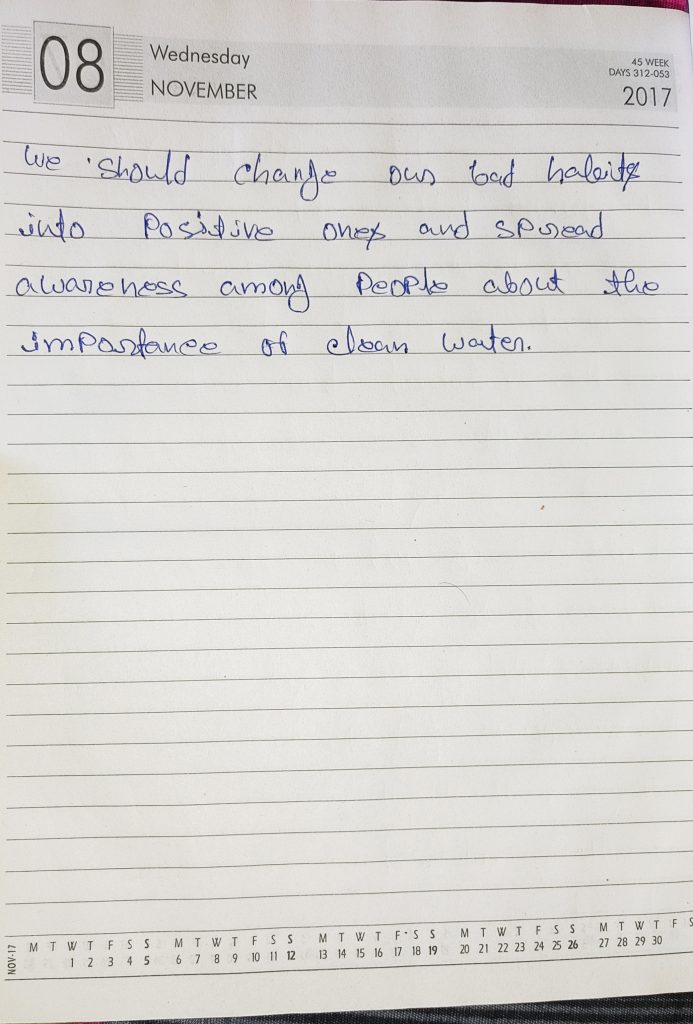 08
Wednesday
NOVEMBER
45 WEEK
DAYS 312-053
2017
We should change our bad habits
into Positive ones and spread
awareness among People about the
importance of clean water.
NOV-17
M T W T F S S M T W T F S S M T W T F S S M T W T F S S M T W T F S
1 2 3 4 5 6 7 8 9 10 11 12 13 14 15 16 17 18 19 20 21 22 23 24 25 26 27 28 29 30